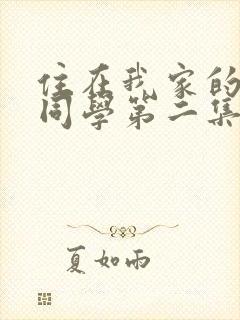 住在我家的
同學第二集
夏如雨